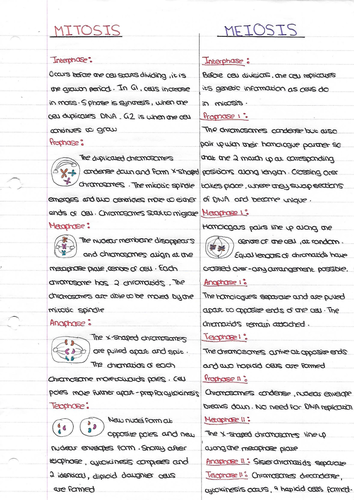 MITOSIS
Interphase:
Occurs before the cell starts dividing, it is
the growth period. In G1, cells increase
in mass. S phase is synthesis, when the
cell duplicates DNA. G2 is when the cell
continues to grow
Prophase:
The duplicated chromosomes
condense down and form X-shaped
chromosomes. The mitotic spindle
emerges and two centrioles move to either
ends of cell. Chromosomes start to migrate
Metaphase:
The nuclear membrane disappears
and chromosomes align at the
metaphase plate, centre of cell. Each
chromosome has 2 chromatids. The
chromosomes are able to be moved by the
mitotic spindle
Anaphase:
The x-shaped chromosomes
are pulled apart and split.
The chromatids of each
chromosome move towards poles. Cell
poles move further apart - prep for cytokinesis
Telophase:
New nuclei form at
opposite poles and new
nuclear envelopes form. Shortly after
telophase, cytokinesis completes and
2 identical, diploid daughter cells
are formed
MEIOSIS
Interphase:
Before cell division, the cell replicates
its genetic information as cells do
in mitosis.
Prophase I:
The chromosomes condense but also
pair up with their homologue partner so
that the 2 match up at corresponding
positions along length. Crossing over
takes place, where they swap sections
of DNA and become unique.
Metaphase I:
Homologous pairs line up along the
centre of the cell, at random.
Equal lengths of chromatids have
crossed over - any arrangement possible.
Anaphase I:
The homologues separate and are pulled
apart to opposite ends of the cell. The
chromatids remain attached.
Telophase I:
The chromosomes arrive at opposite ends
and two haploid cells are formed
Prophase II:
Chromosomes condense, nuclear envelope
breaks down. No need for DNA replication
Metaphase II:
The X-shaped chromosomes line up
along the metaphase plate
Anaphase II: Sister chromatids separate
Telophase II: Chromosomes decondense,
cytokinesis occurs, 4 haploid cells formed